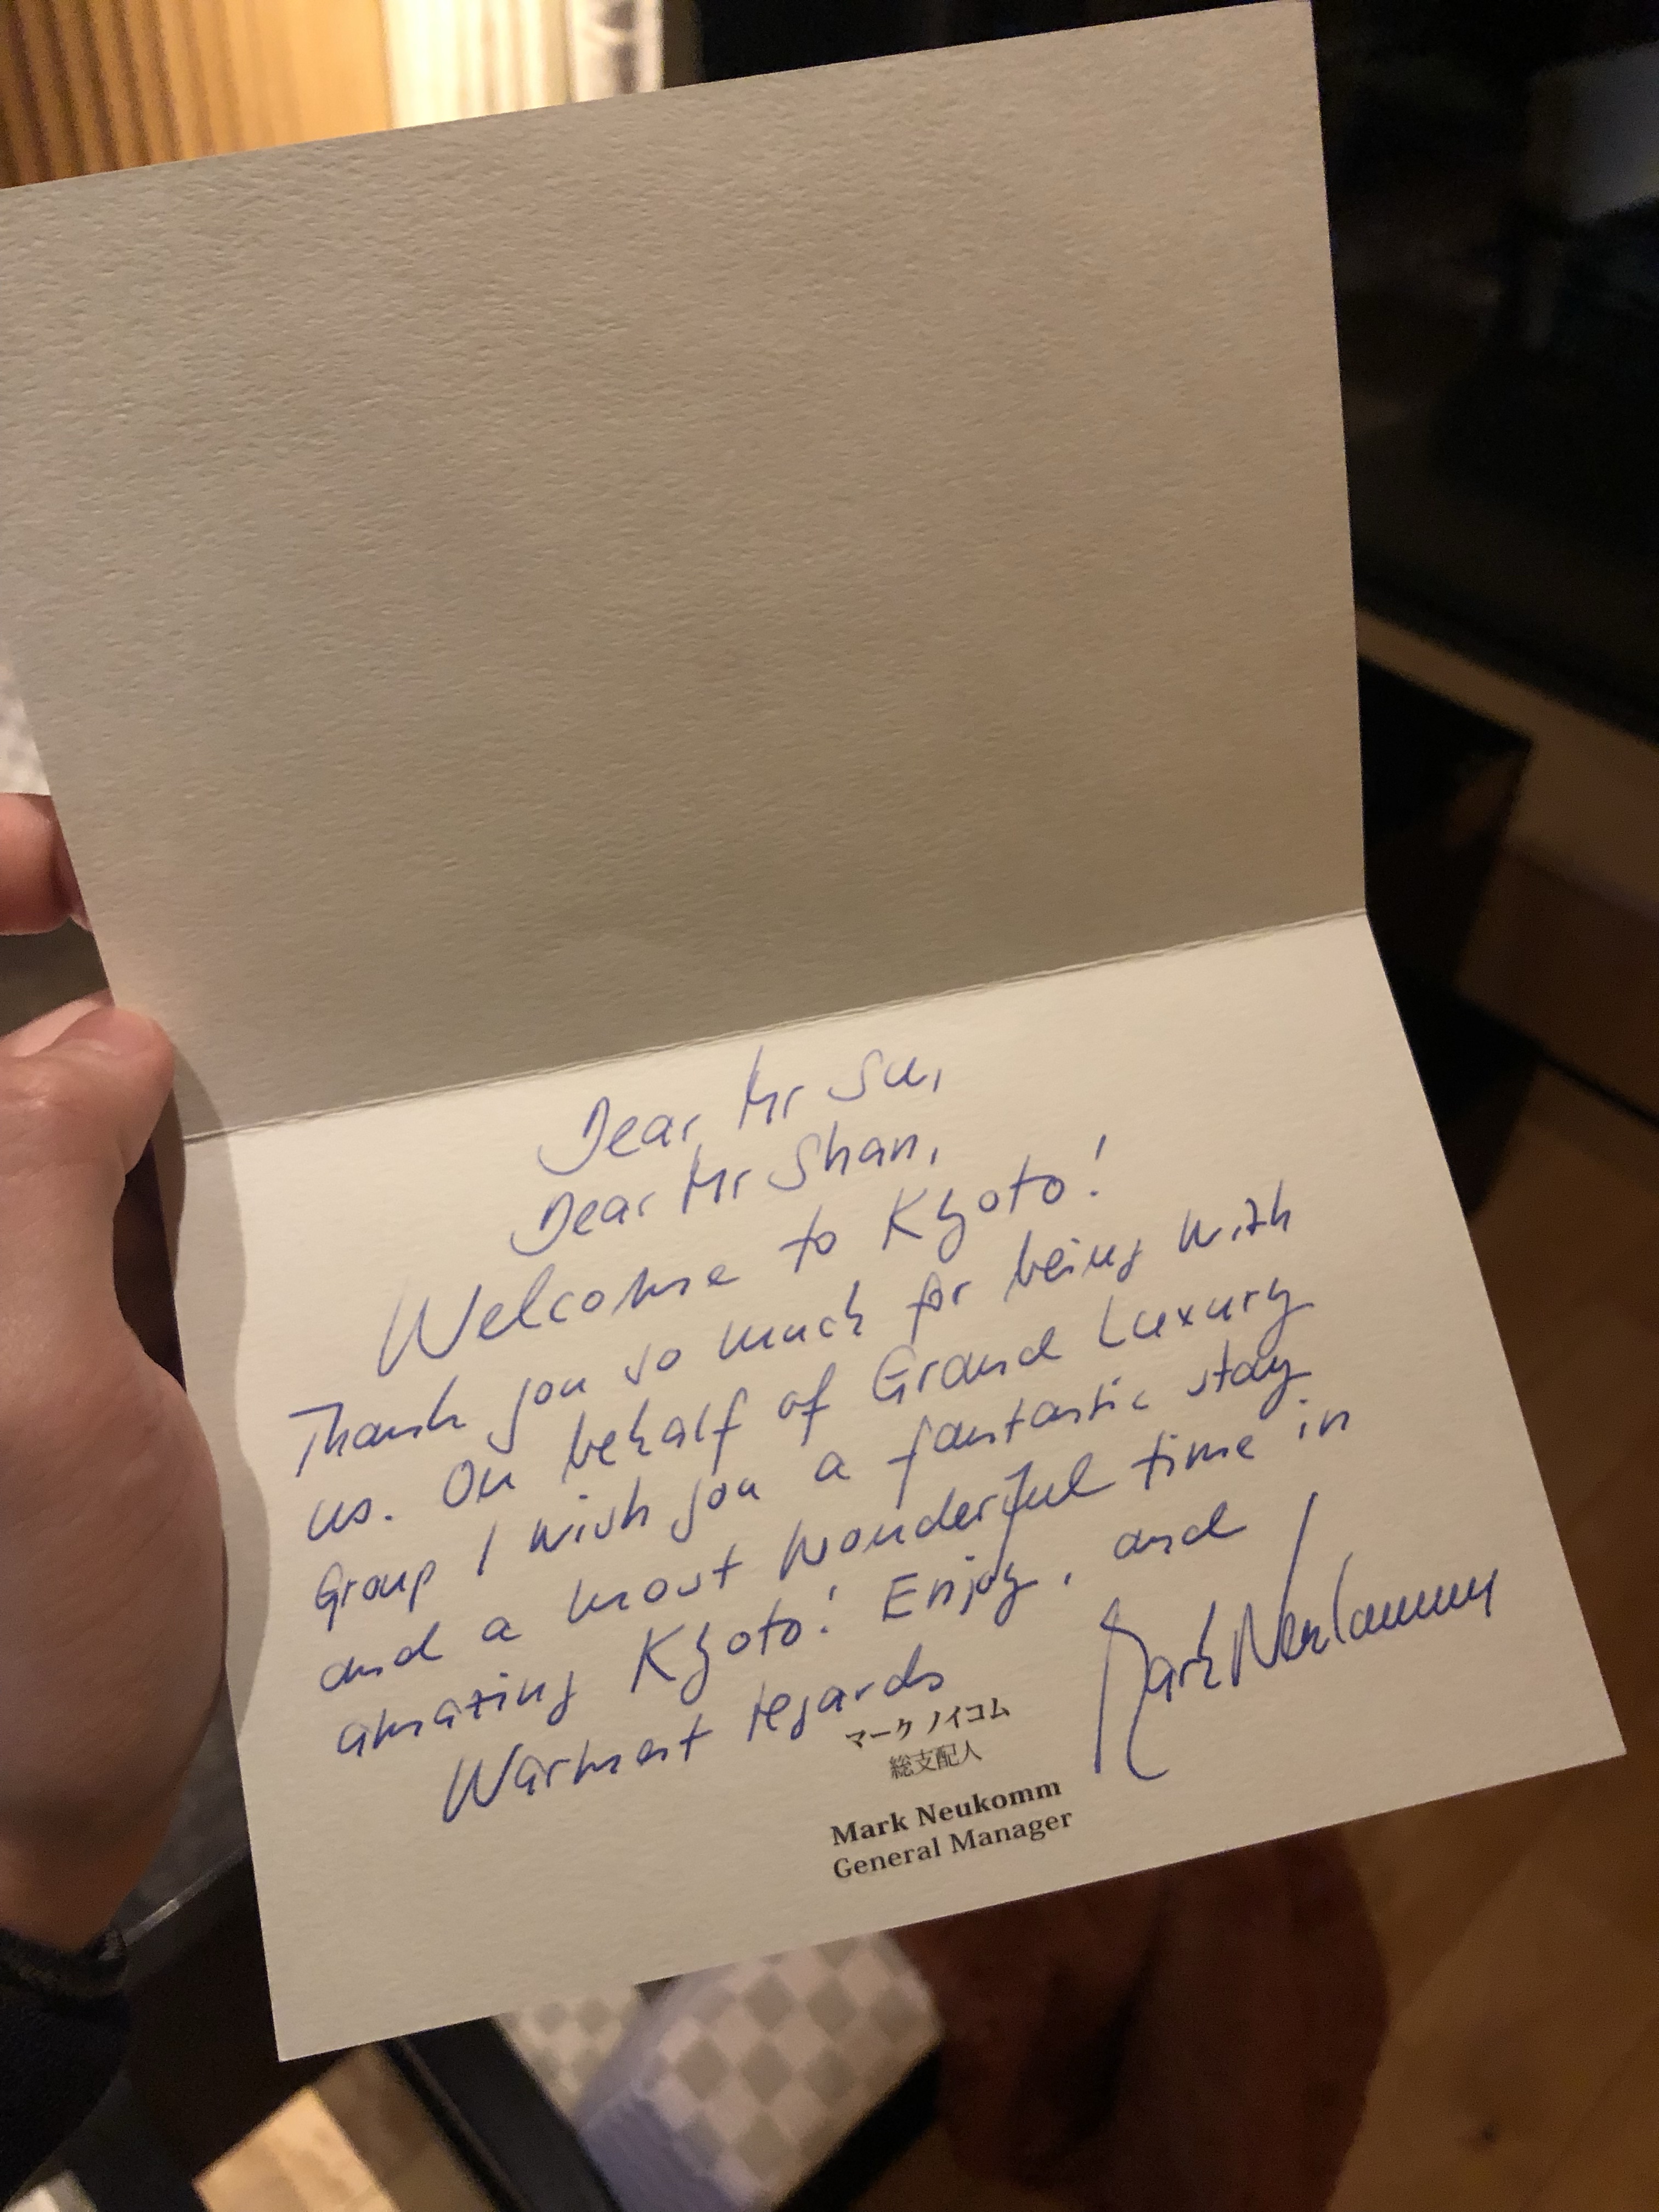 Dear Mr Su,
Dear Mr Shan,
Welcome to Kyoto!
Thank you so much for being with
us. On behalf of Grand Luxury
Group I wish you a fantastic stay
and a most wonderful time in
amazing Kyoto! Enjoy, and
Warmest regards
Mark Neukomm
マーク ノイコム
総支配人
Mark Neukomm
General Manager